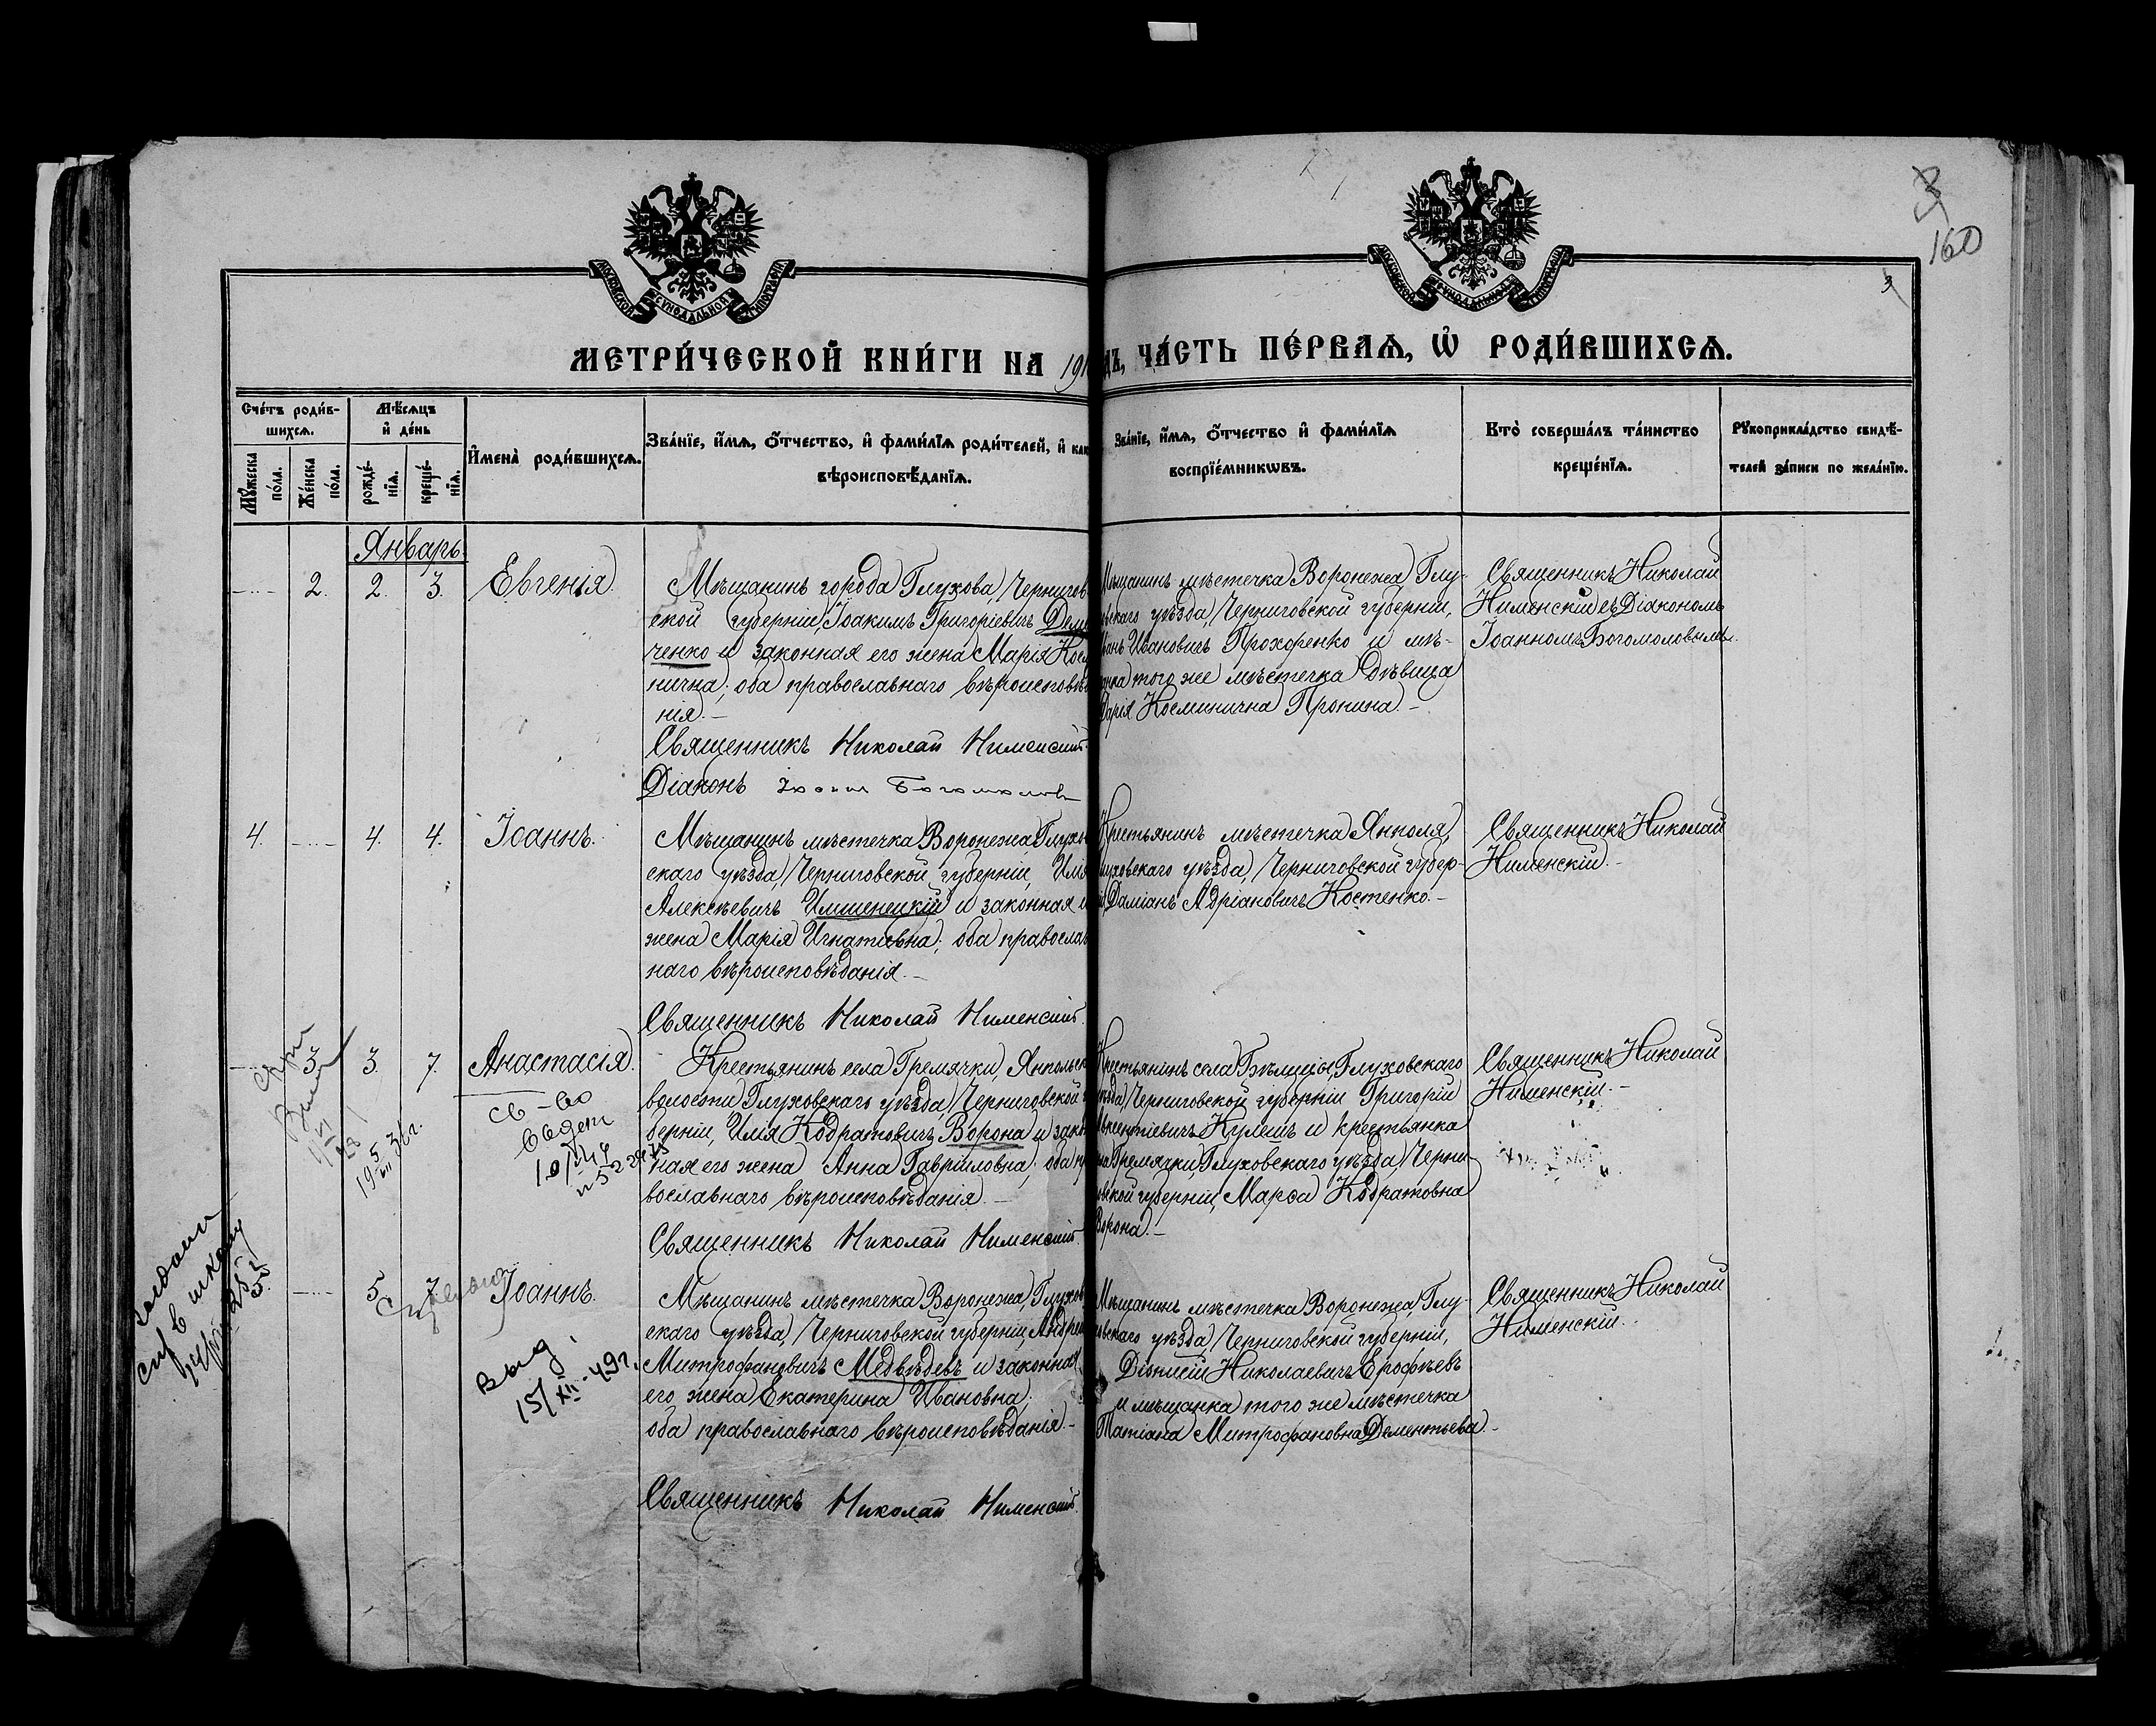 160
3
МОСКОВСКОЙ СУНОДАЛЬНОЙ ТИПОГРАФІИ
МОСКОВСКОЙ СУНОДАЛЬНОЙ ТИПОГРАФІИ
МЕТРИ́ЧЕСКОЙ КНИ́ГИ НА 191
ДЪ, ЧА́СТЬ ПЕ́РВАѦ, Ѡ҆ РОДИ́ВШИХСѦ.
Сче́тъ роди́в-
шихсѧ.
Мѣ́сѧцъ
и҆ де́нь
Мꙋ́жеска
по́ла.
Же́нска
по́ла.
рожде́-
нїѧ.
креще́-
нїѧ.
И҆мена̀ роди́вшихсѧ.
Зва́нїе, и҆́мѧ, ѻ҆́тчество, и҆ фами́лїѧ роди́телей, и҆ как
вѣроисповѣ́данїѧ.
Зва́нїе, и҆́мѧ, ѻ҆́тчество и҆ фами́лїѧ
воспрїе́мникѡвъ.
Кто̀ соверша́лъ та́инство
креще́нїѧ.
Рꙋкоприкла́дство свидѣ́-
телей за́писи по жела́нїю.
Январь.
2. 2. 3. Евгенія.
Мѣщанинъ города Глухова, Чернигов
ской губерніи, Іоакимъ Григоріевичъ Дем
ченко и законная его жена Марія Косм
нична; оба православнаго вѣроисповѣд
нія.-
Священникъ Николай Нименскій
Діаконъ Іоаннъ Богомолов
Мѣщанинъ мѣстечка Воронежа, Глу-
вскаго уѣзда, Черниговской губерніи,
Ивановичъ Прохоренко и мѣ-
того же мѣстечка дѣвица
Дарія Косминична Пронина.-
Священникъ Николай
Нименскій съ Діакономъ
Іоанномъ Богомоловымъ.
4. 4. 4. Іоаннъ.
Мѣщанинъ мѣстечка Воронежа Глухов
скаго уѣзда, Черниговской губерніи, Илія
Алексѣевичъ Имшенецкій и законная
жена Марія Игнатіевна; оба православ
наго вѣроисповѣданія.-
Священникъ Николай Нименскій
Крестьянинъ мѣстечка Янполя,
луховскаго уѣзда, Черниговской губер-
Даміанъ Адріановичъ Костенко.-
Священникъ Николай
Нименскій.-
3. 3. 7. Анастасія.
Крестьянинъ села Гремячки, Янпольск
волости Глуховскаго уѣзда, Черниговской
берніи, Илія Кодратовичъ Ворона и зак
ная его жена Анна Гавріиловна; оба пр
вославнаго вѣроисповѣданія.-
Священникъ Николай Нименскій
Крестьянинъ села Бѣлицы, Глуховскаго
уѣзда, Черниговской губерніи Григорій
Кулешъ и крестьянка
Гремячки, Глуховскаго уѣзда, Черни-
вской губерніи, Марѳа Кодратовна
Ворона.-
Священникъ Николай
Нименскій.-
св-во
10/
5 7. Іоаннъ.
Выд
15/XII-49г.
Мѣщанинъ мѣстечка Воронежа, Глухов
скаго уѣзда, Черниговской губерніи, Андрей
Митрофановичъ Медвѣдевъ и законная
его жена Екатерина Ивановна;
оба православнаго вѣроисповѣданія.-
Священникъ Николай Нименскій
Мѣщанинъ мѣстечка Воронежа, Глу-
овскаго уѣзда, Черниговской губерніи,
Діонисій Николаевичъ Ерофѣевъ
и мѣщанка того же мѣстечка
Татіана Митрофановна Дементьева.-
Священникъ Николай
Нименскій.